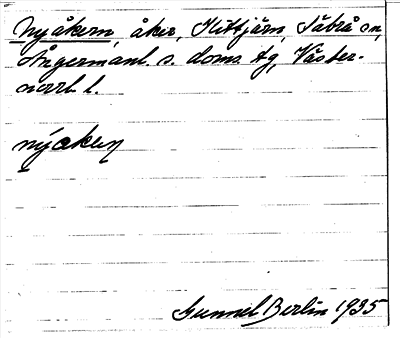 Nyåkern, åker, Hittjärn, Säbrå sn,
Ångermanl. s. doms. tg, Väster-
norrl. l.
nýakeṇ
Gunnel Berlin 1935